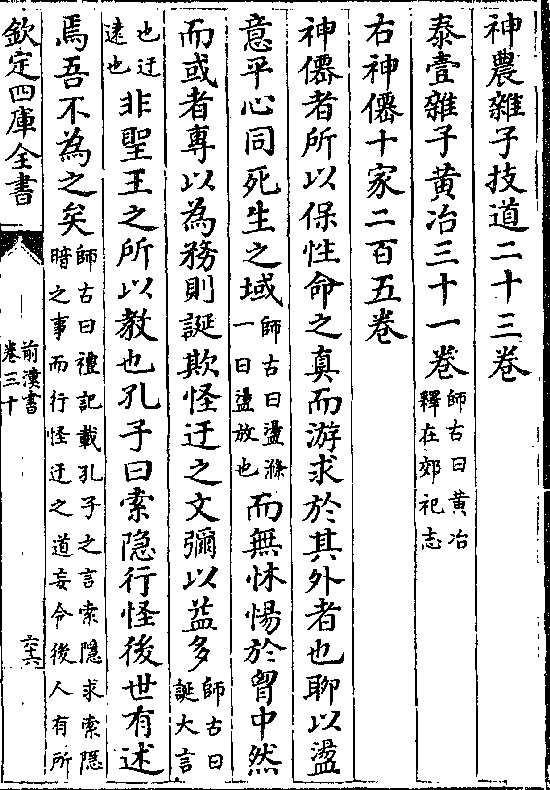 神農雜子技道二十三卷
泰壹雜子黄冶三十一卷師古曰黄冶釋在郊祀志
右神僊十家二百五卷
神僊者所以保性命之真而游求於其外者也聊以盪
意平心同死生之域師古曰盪滌一曰盪放也而無怵惕於胷中然
而或者專以為務則誕欺怪迂之文彌以益多師古曰誕大言
也迂遠也非聖王之所以教也孔子曰索隐行怪後世有述
焉吾不為之矣師古曰禮記載孔子之言索隱求索隱暗之事而行怪迂之道妄令後人有所
欽定四庫全書
前漢書
卷三十
六十六